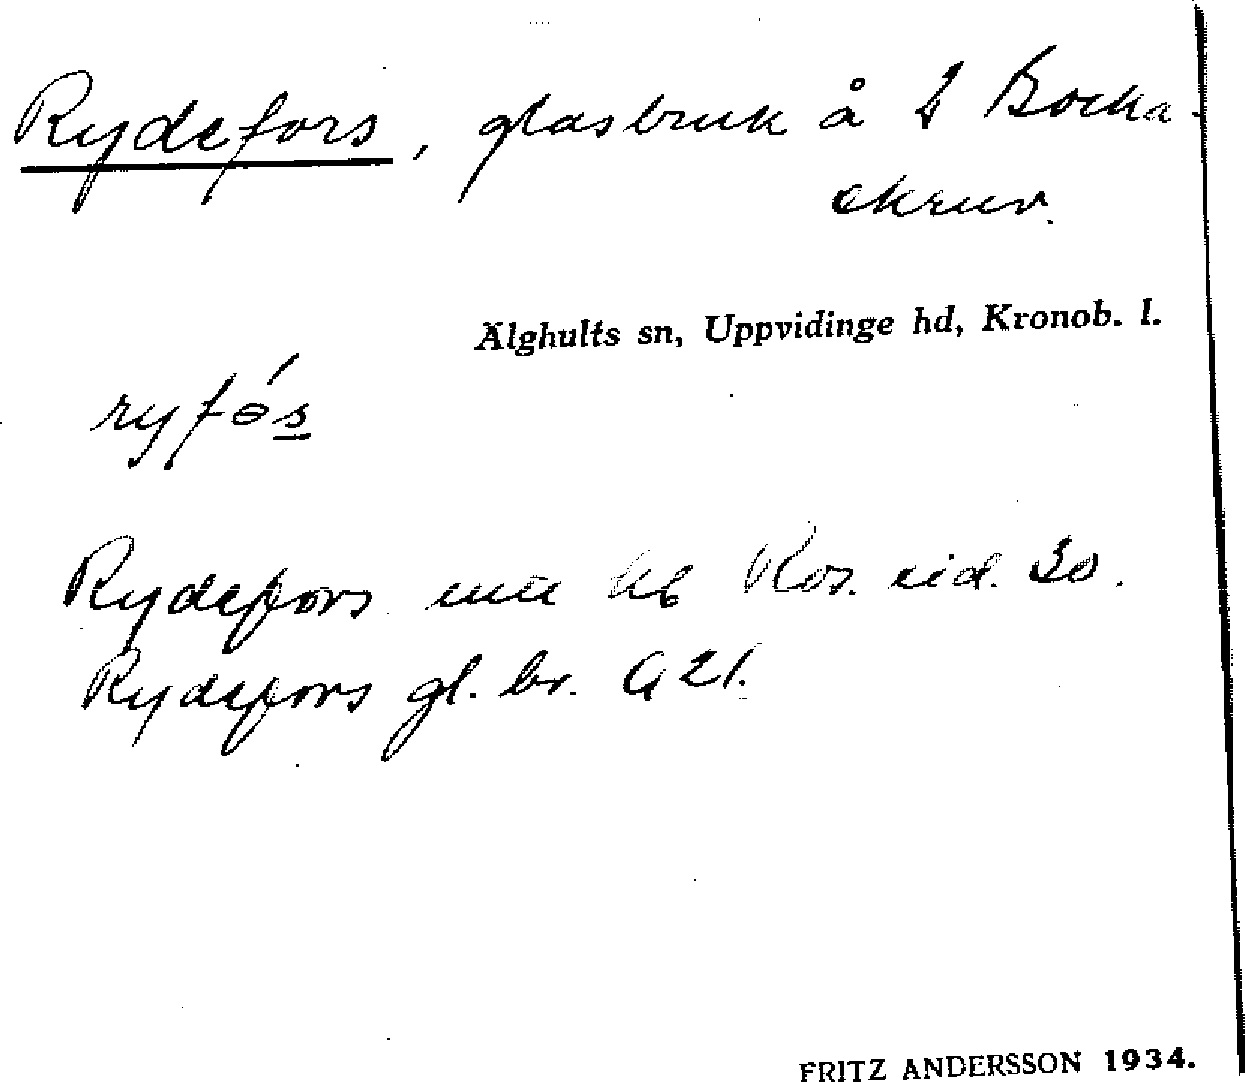 Rydefors, glasbruk å 1 Bocka-
skruv.
Älghults sn, Uppvidinge hd, Kronob. l.
ryfɵ́s
Rydefors
Rydefors gl. br. G 21.
FRITZ ANDERSSON 1934.